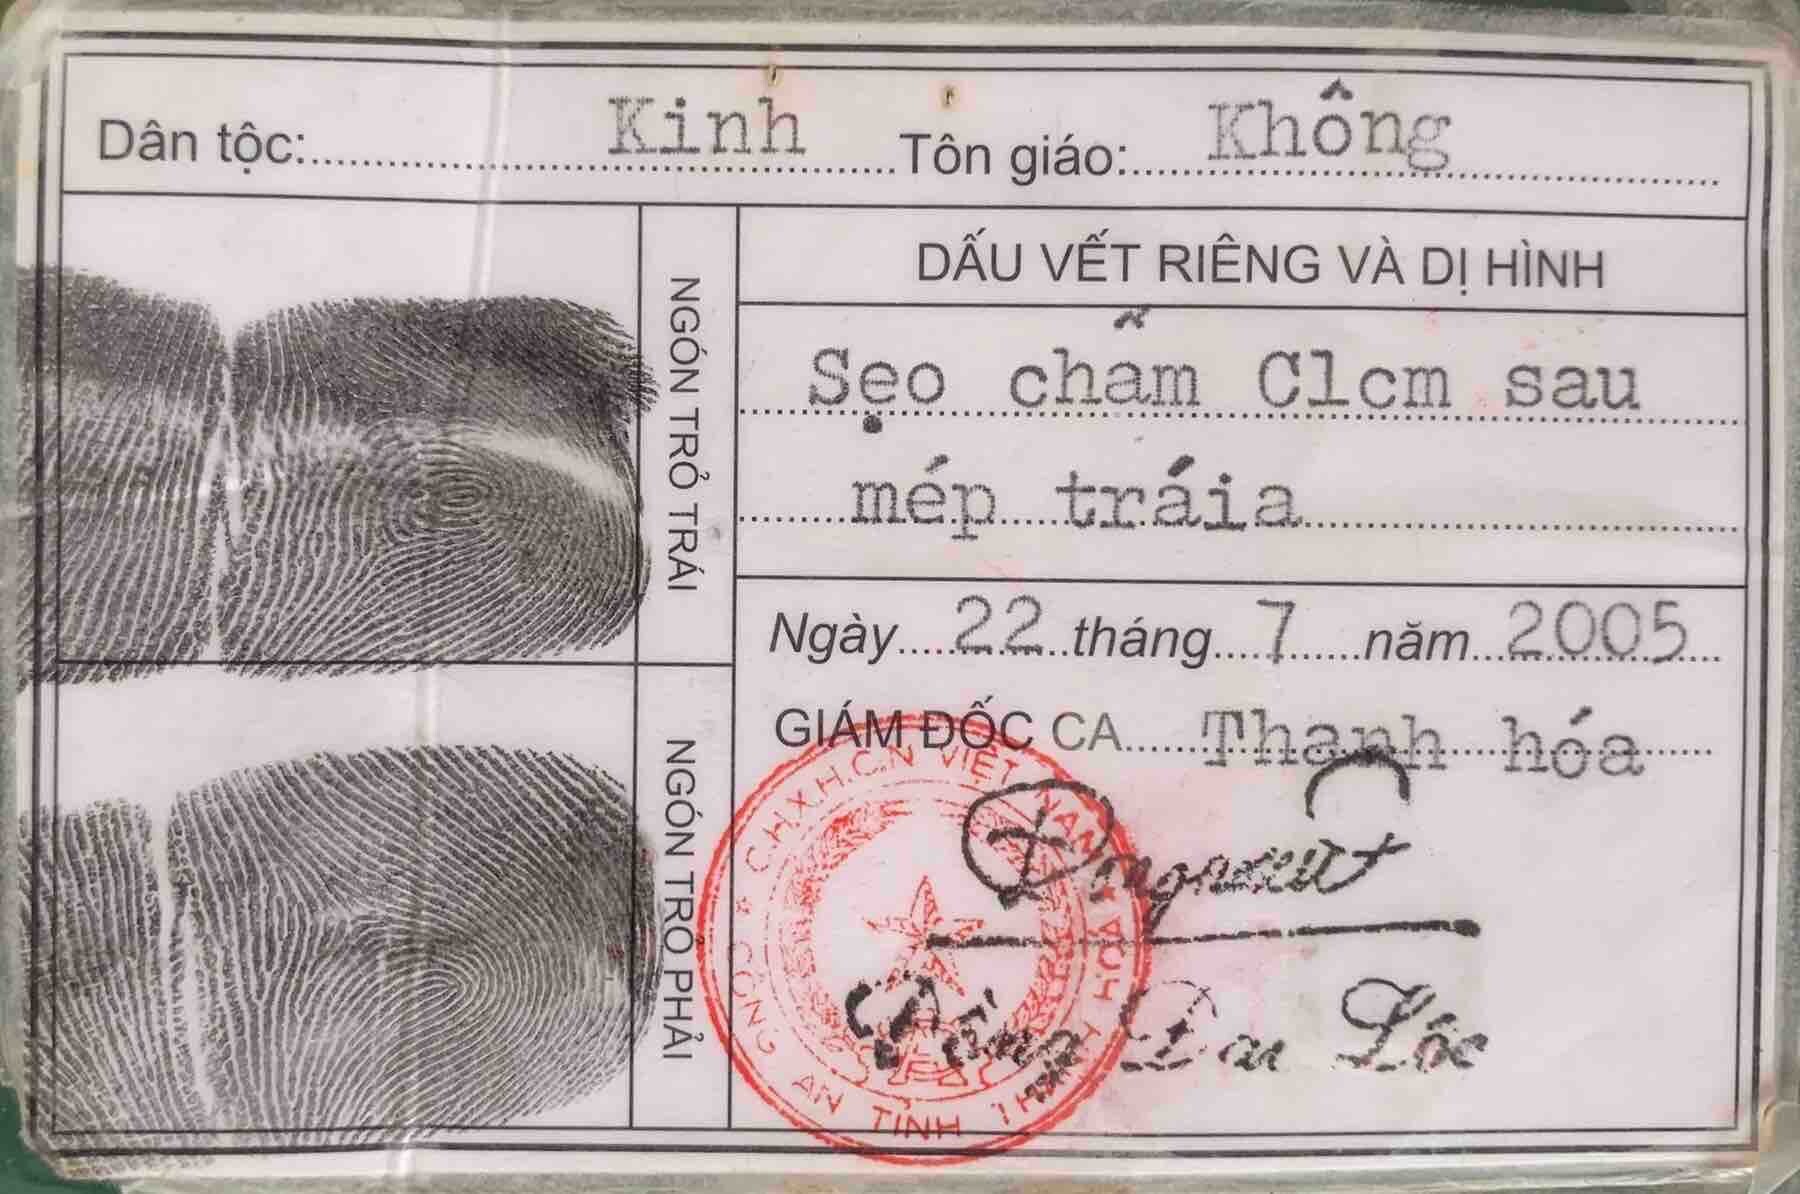 Dân tộc: Kinh Tôn giáo: Không
NGÓN TRỎ TRÁI
DẤU VẾT RIÊNG VÀ DỊ HÌNH
Sẹo chấm C1cm sau
mép tráia
Ngày 22 tháng 7 năm 2005
GIÁM ĐỐC CA Thanh hóa
NGÓN TRỎ PHẢI
C.H.X.H.C.N VIỆT NAM
CÔNG AN TỈNH THANH HÓA
Đồng Đại Lộc